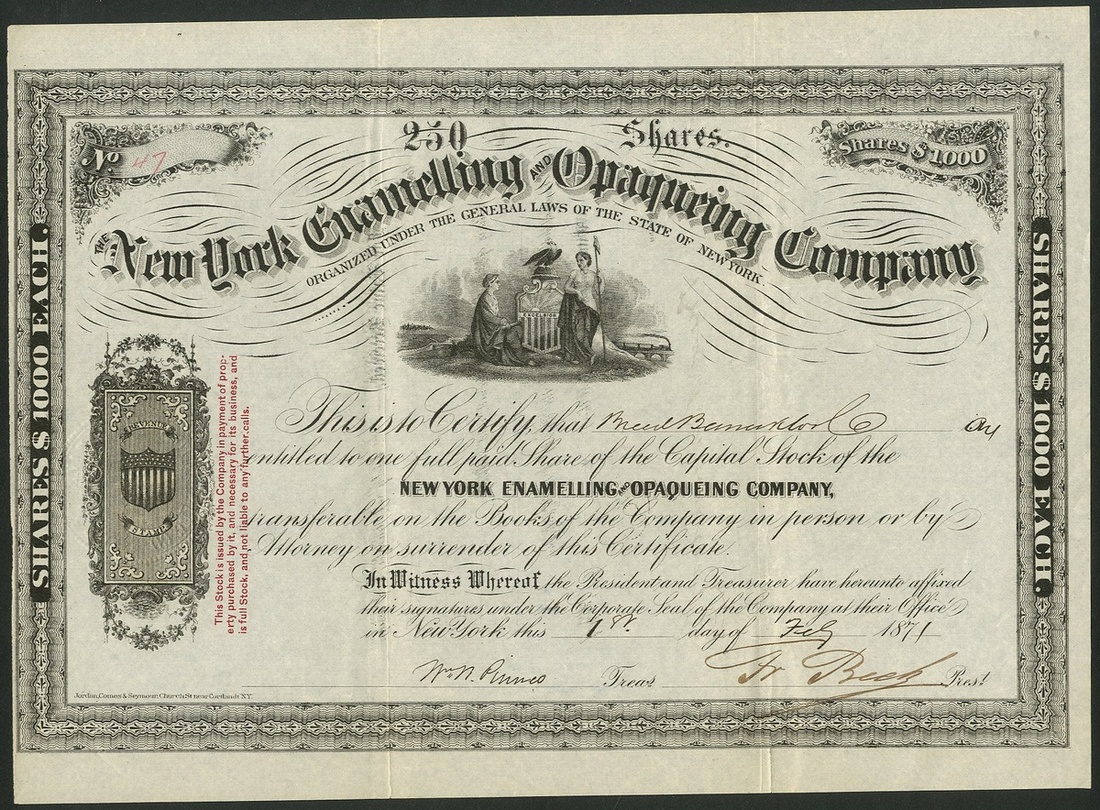 250 Shares.
No. 47
Shares $1,000
THE New York Enamelling AND Opaqueing Company
ORGANIZED UNDER THE GENERAL LAWS OF THE STATE OF NEW YORK.
EXCELSIOR
SHARES $1000 EACH.
SHARES $1000 EACH.
This Stock is issued by the Company in payment of prop-
erty purchased by it, and necessary for its business, and
is full Stock, and not liable to any further calls.
This is to Certify, that
entitled to one full paid Share of the Capital Stock of the
NEW YORK ENAMELLING AND OPAQUEING COMPANY,
transferable on the Books of the Company in person or by
Attorney on surrender of this Certificate.
In Witness Whereof, the President and Treasurer have hereunto affixed
their signatures under the Corporate Seal of the Company at their Office
in New York this 1st. day of Feby 1871
Wm. Treas. Fr Beck Prest
Jordan, Comes & Seymour, Church St near Cortlandt NY.